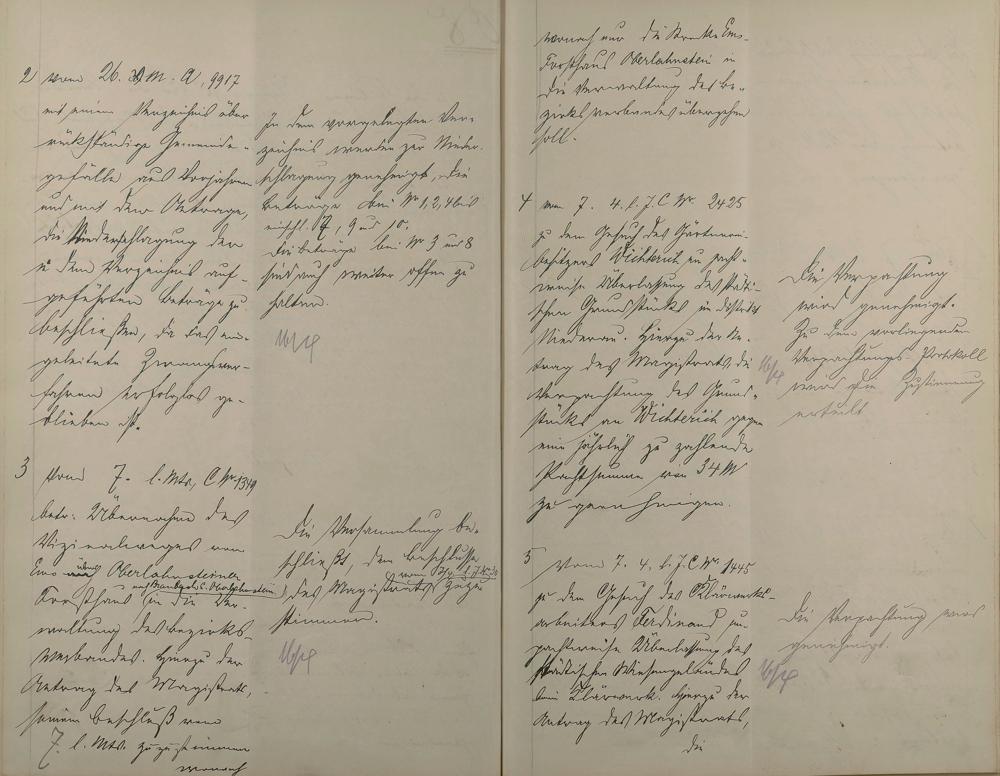 2 vom 26. v. M. A. 9917
mit einem Verzeichnis über
rückständige Gemeinde-
gefälle aus Vorjahren
und mit dem Antrage,
die Niederschlagung der
in dem Verzeichnis auf-
geführten Beträge zu
beschließen, da das ein-
geleitete Zwangsver-
fahren erfolglos ge-
blieben ist.
In dem vorgelegten Ver-
zeichnis werden zur Nieder-
schlagung genehmigt, die
Beträge bei Nr 1, 2, 4 bis
einschl. 7, 9 und 10.
Die Beträge bei Nr 3 und 8
sind auch weiter offen zu
halten.
3 vom 7. l. Mts, C Nr. 1349
betr. Übernahme des
Vizinalweges von
Ems über Oberlahnsteiner
Forsthaus in die Ver-
waltung des Bezirks-
verbandes. Hierzu der
Antrag des Magistrats,
seinem Beschluß vom
7. l. Mts. zuzustimmen
wonach
Die Versammlung be-
schließt, dem Beschlusse
des Magistrats zuzu-
stimmen.
wonach nur die Strecke Ems-
Forsthaus Oberlahnstein in
die Verwaltung des Be-
zirksverbandes übergehen
soll.
4 vom 7. 4. l. J. C Nr. 2425
zu dem Gesuch des Gärtnerei-
besitzers Wichterich um pacht-
weise Überlassung des städti-
schen Grundstücks im Distrikt
Niederau. Hierzu der An-
trag des Magistrats, die
Verpachtung des Grund-
stücks an Wichterich gegen
eine jährlich zu zahlende
Pachtsumme von 34 M
zu genehmigen.
Die Verpachtung
wird genehmigt.
Zu dem vorliegenden
Verpachtungs-Protokoll
wird die Zustimmung
erteilt
5 vom 7. 4. l. J. C Nr. 1445
zu dem Gesuch des Klärwerks-
arbeiters Ferdinand um
pachtweise Überlassung des
städtischen Wiesengeländes
beim Klärwerk. Hierzu der
Antrag des Magistrats,
die
Die Verpachtung wird
genehmigt.